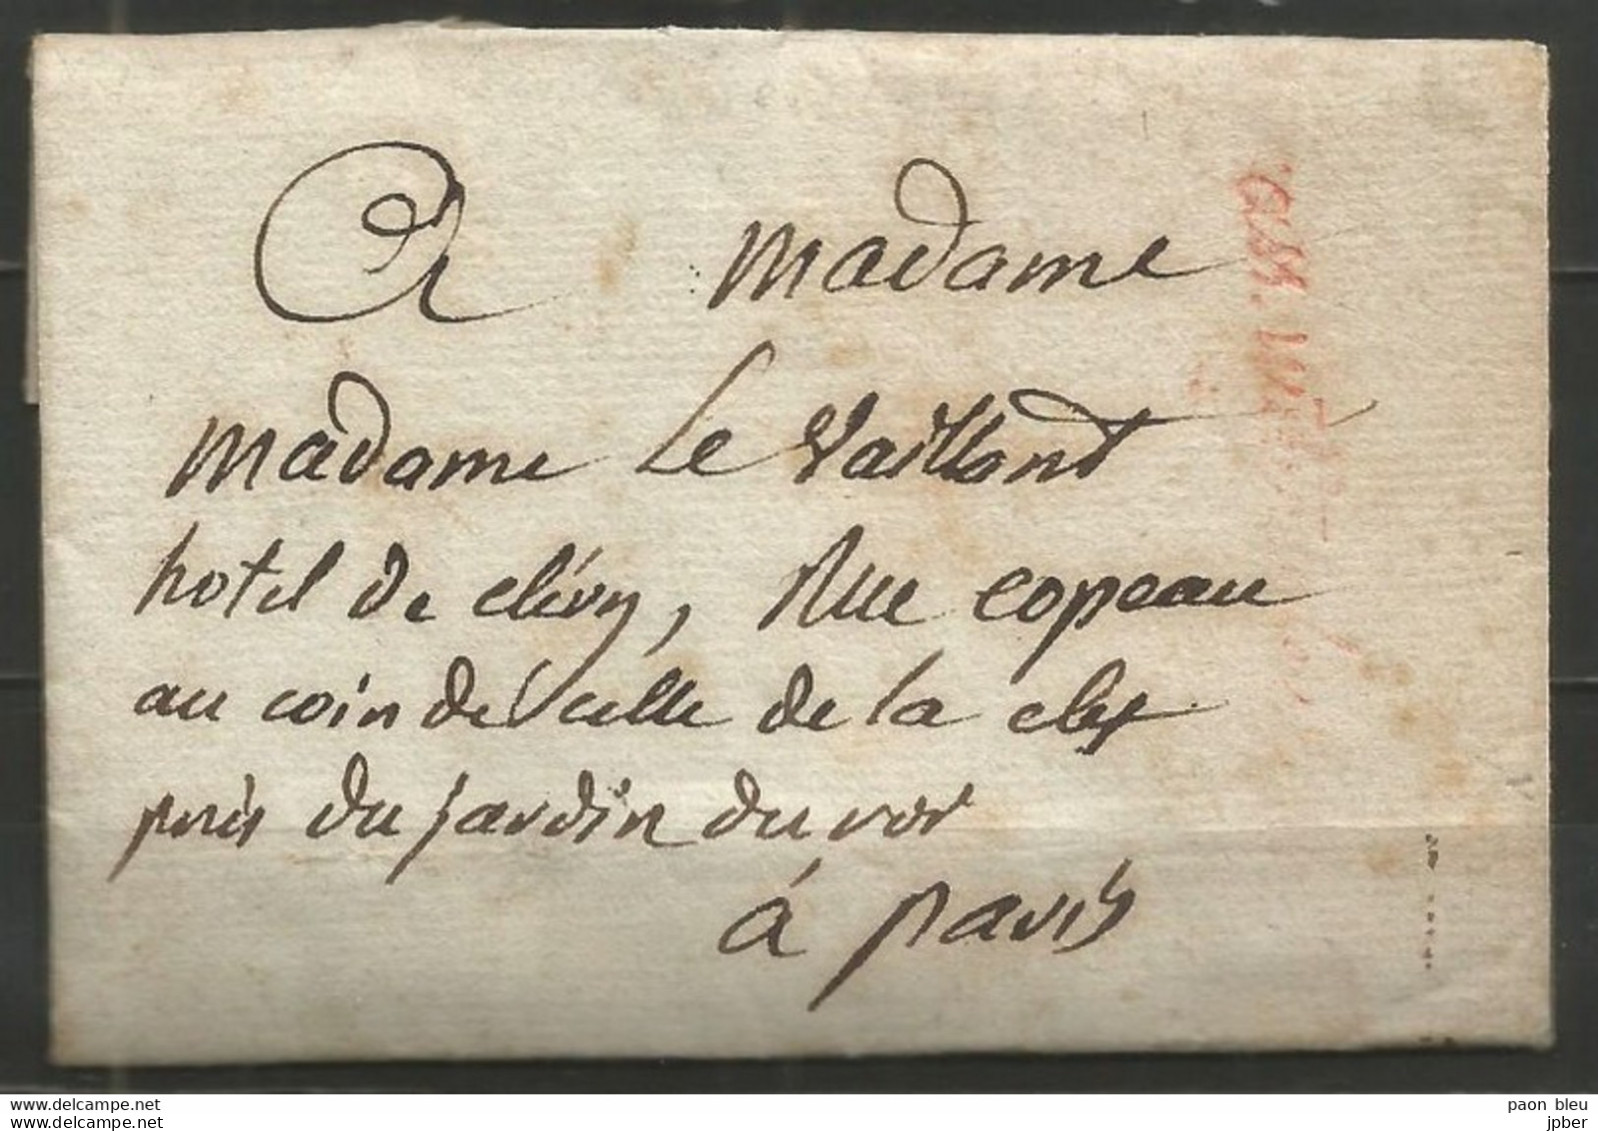 A Madame
Madame Le Vaillant
hotel de clévy, Rue copeau
au coin de celle de la clef
près du jardin du roi
à paris
www.delcampe.net
www.delcampe.net
paon bleu
jpber